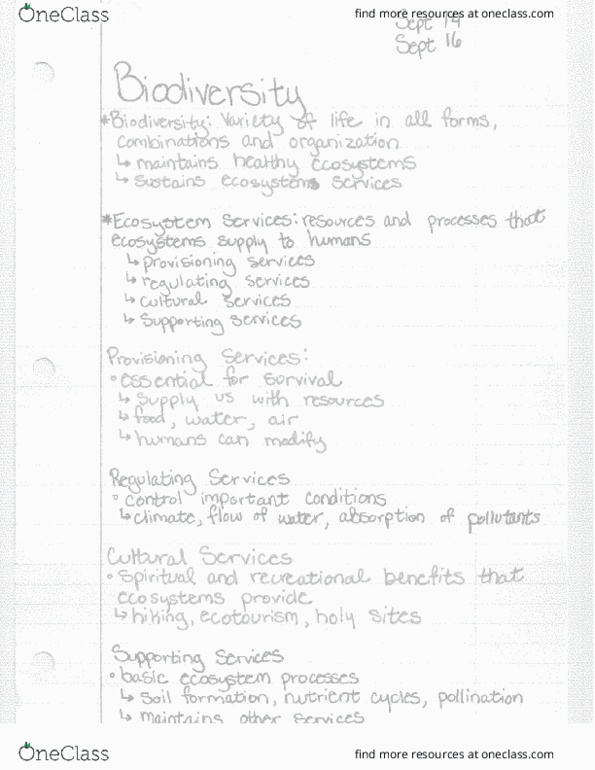 OneClass
find more resources at oneclass.com
Sept 14
Sept 16
Biodiversity
*Biodiversity: Variety of life in all forms,
combinations and organization
↳ maintains healthy ecosystems
↳ sustains ecosystems services
*Ecosystem Services: resources and processes that
ecosystems supply to humans
↳ provisioning services
↳ regulating services
↳ cultural services
↳ Supporting services
Provisioning Services:
° essential for survival
↳ supply us with resources
↳ food, water, air
↳ humans can modify
Regulating Services
° control important conditions
↳ climate, flow of water, absorption of pollutants
Cultural Services
° Spiritual and recreational benefits that
ecosystems provide
↳ hiking, ecotourism, holy sites
Supporting Services
° basic ecosystem processes
↳ Soil formation, nutrient cycles, pollination
↳ maintains other services
OneClass
find more resources at oneclass.com